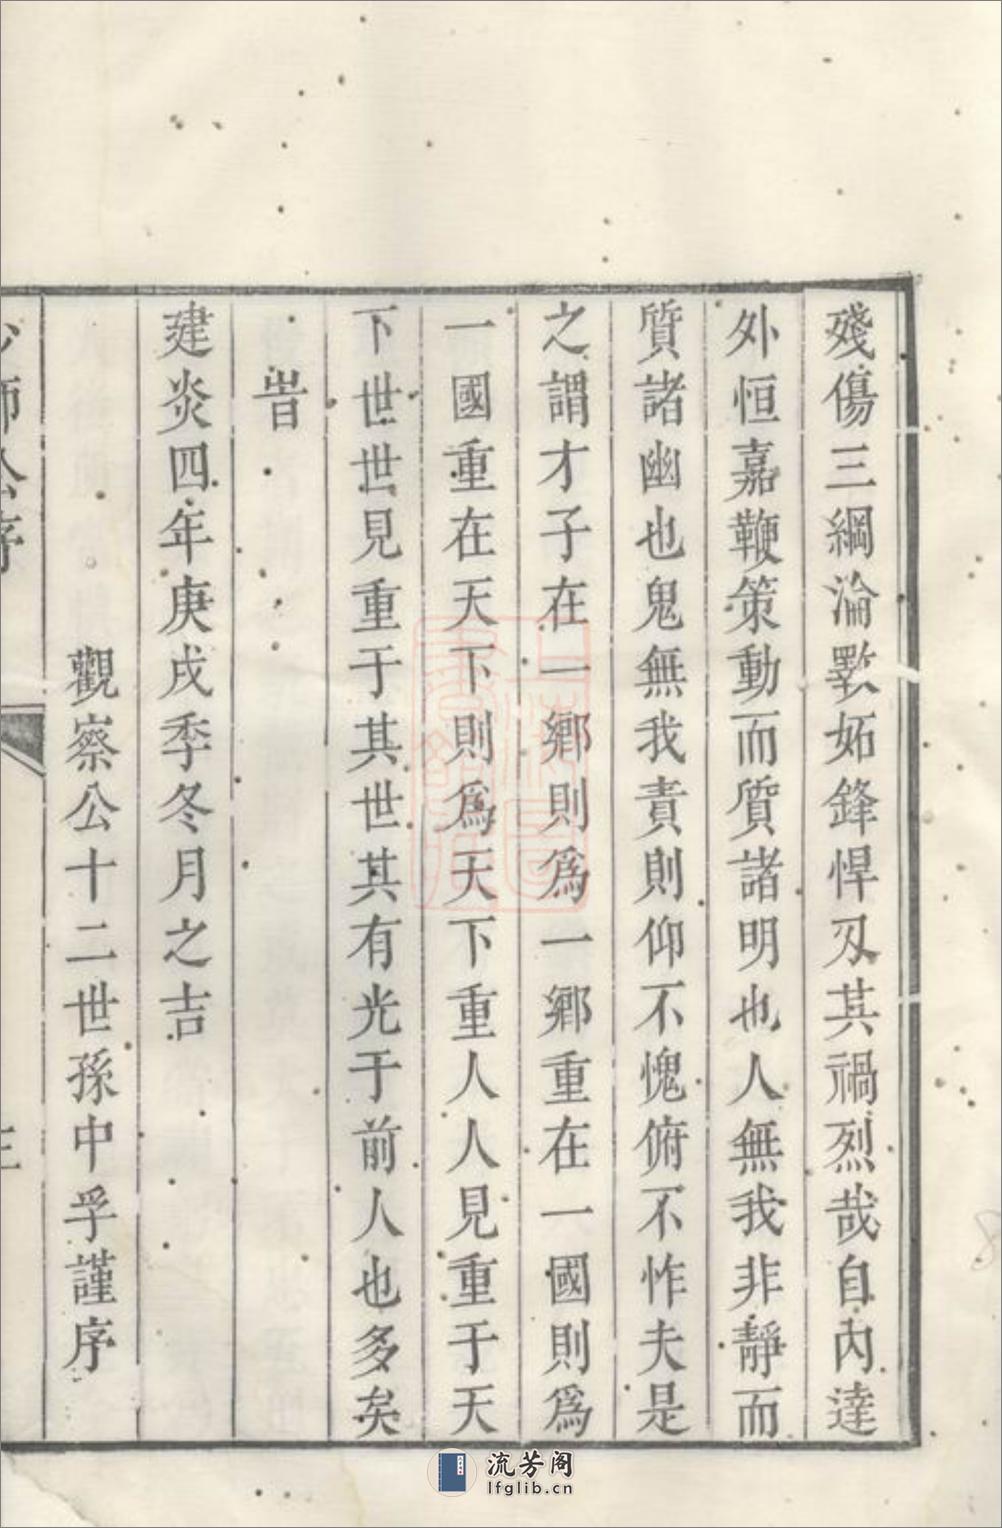 殘傷三綱淪斁妬鋒悍刄其禍烈哉自內達
外恒嘉鞭策動而質諸明也人無我非靜而
質諸幽也鬼無我責則仰不愧俯不怍夫是
之謂才子在一鄉則爲一鄉重在一國則爲
一國重在天下則爲天下重人人見重于天
下世世見重于其世其有光于前人也多矣
旹
建炎四年庚戌季冬月之吉
觀察公十二世孫中孚謹序
師公序
流芳阁
lfglib.cn